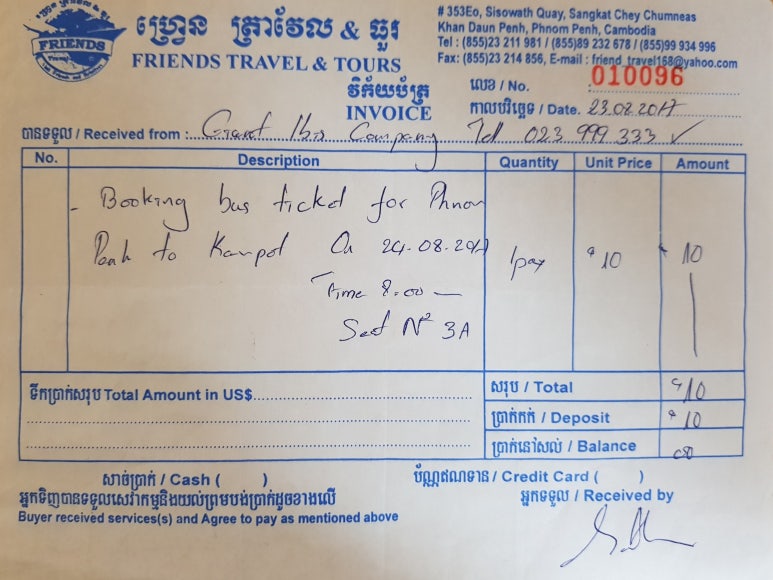 ហ្វ្រេន ត្រាវែល & ធួរ
FRIENDS
FRIENDS TRAVEL & TOURS
វិក័យប័ត្រ
INVOICE
# 353Eo, Sisowath Quay, Sangkat Chey Chumneas
Khan Daun Penh, Phnom Penh, Cambodia
Tel : (855)23 211 981 / (855)89 232 678 / (855)99 934 996
Fax: (855)23 214 856, E-mail : friend_travel168@yahoo.com
លេខ / No. 010096
កាលបរិច្ឆេទ / Date. 23.08.2017
បានទទួល / Received from : Giant Ibis Company Tel 023 999 333 ✓
No. Description Quantity Unit Price Amount
- Booking bus ticket for Phnom
Penh to Kampot On 24-08-2017 1pax $10 $10
Time 8.00
Seat Nº 3A
ទឹកប្រាក់សរុប Total Amount in US$ សរុប / Total $10
ប្រាក់កក់ / Deposit $10
ប្រាក់នៅសល់ / Balance
សាច់ប្រាក់ / Cash ( ) ប័ណ្ណឥណទាន / Credit Card ( )
អ្នកទិញបានទទួលសេវាកម្មនិងយល់ព្រមបង់ប្រាក់ដូចខាងលើ អ្នកទទួល / Received by
Buyer received services(s) and Agree to pay as mentioned above